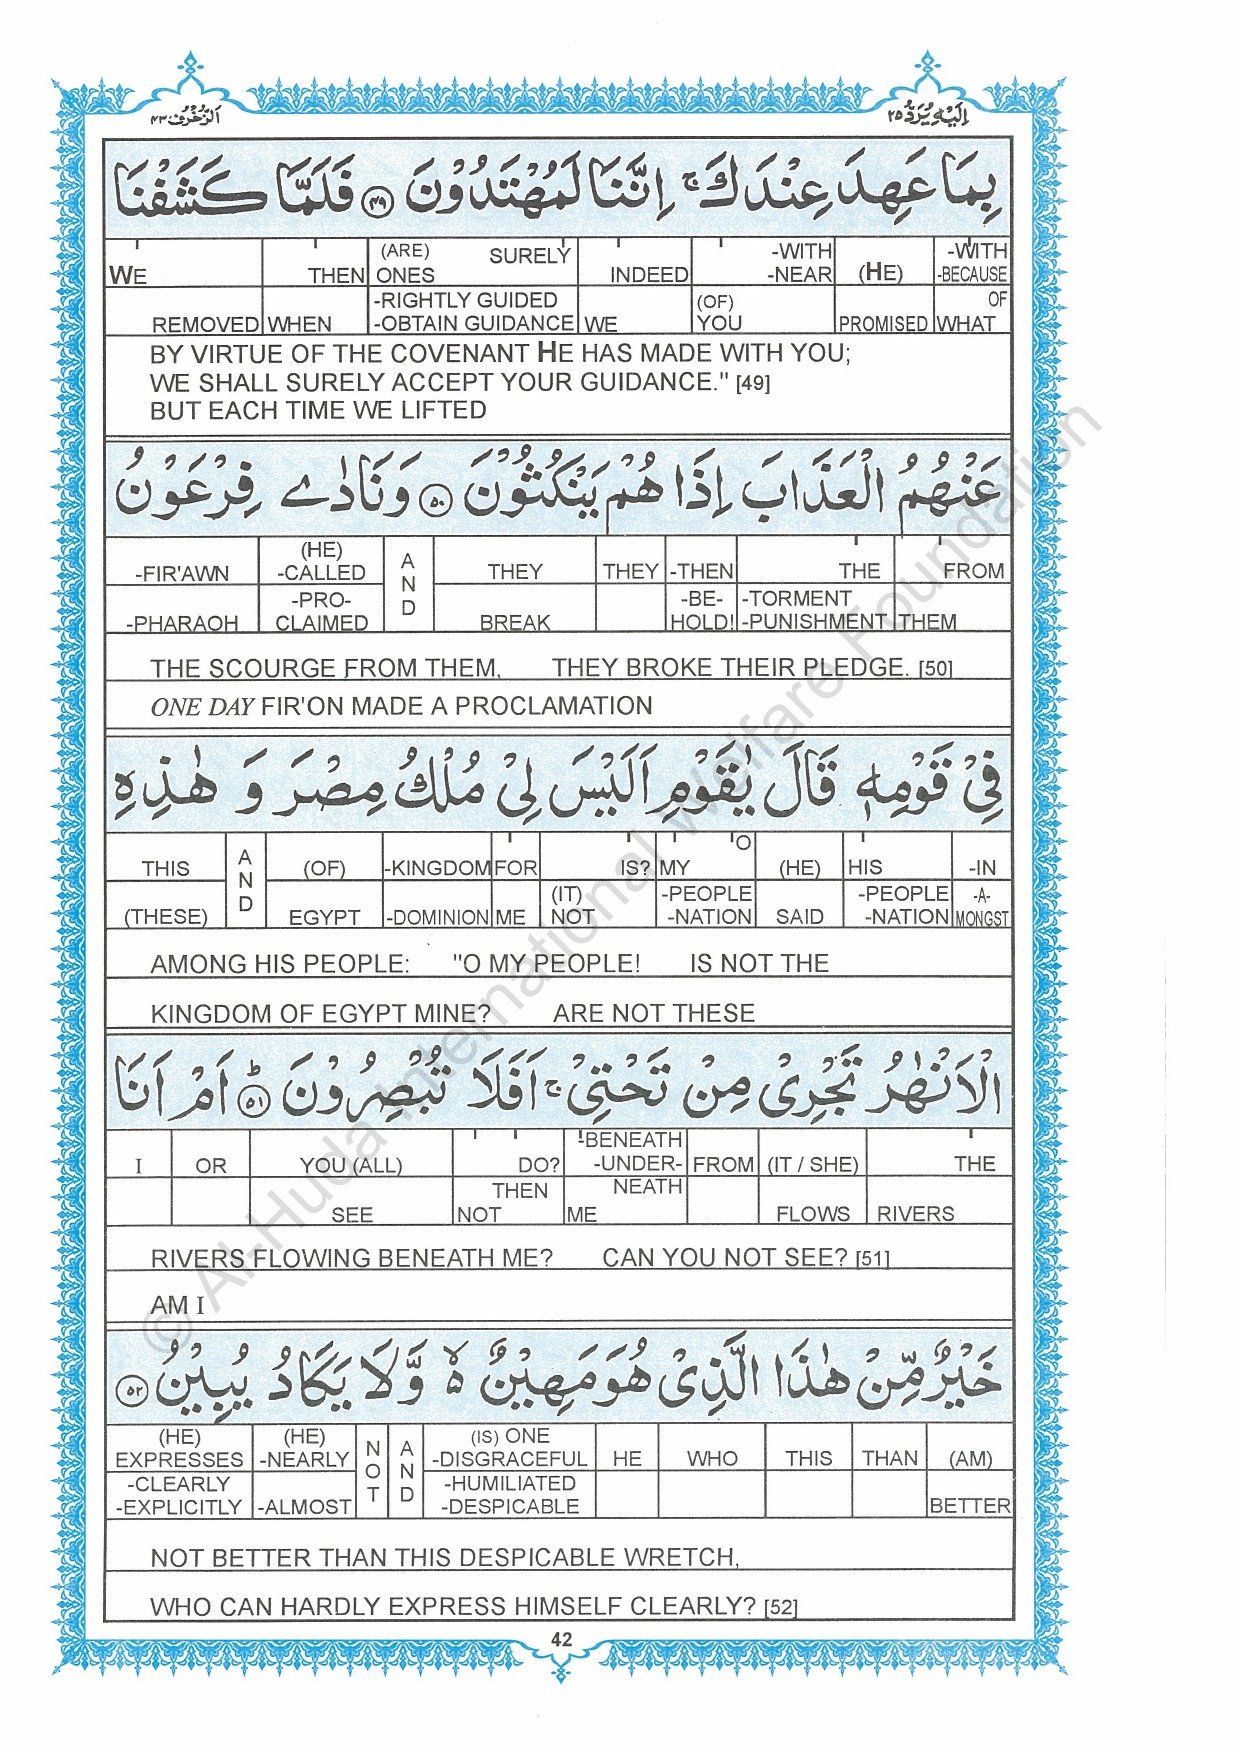 اَلزُّخْرُف ٤٣
اِلَيْهِ يُرَدُّ ٢٥
بِمَا عَهِدَ عِنْدَكَ ۚ اِنَّنَا لَمُهْتَدُوْنَ ٤٩ فَلَمَّا كَشَفْنَا
WE THEN (ARE) ONES SURELY INDEED -WITH -NEAR (HE) -WITH -BECAUSE
REMOVED WHEN -RIGHTLY GUIDED -OBTAIN GUIDANCE WE (OF) YOU PROMISED OF WHAT
BY VIRTUE OF THE COVENANT HE HAS MADE WITH YOU;
WE SHALL SURELY ACCEPT YOUR GUIDANCE." [49]
BUT EACH TIME WE LIFTED
عَنْهُمُ الْعَذَابَ اِذَا هُمْ يَنْكُثُوْنَ ٥٠ وَنَادٰے فِرْعَوْنُ
-FIR'AWN (HE) -CALLED AND THEY THEY -THEN THE FROM
-PHARAOH -PRO- CLAIMED BREAK -BE- HOLD! -TORMENT -PUNISHMENT THEM
THE SCOURGE FROM THEM, THEY BROKE THEIR PLEDGE. [50]
ONE DAY FIR'ON MADE A PROCLAMATION
فِيْ قَوْمِهٖ قَالَ يٰقَوْمِ اَلَيْسَ لِيْ مُلْكُ مِصْرَ وَ هٰذِهِ
THIS AND (OF) -KINGDOM FOR IS? MY O (HE) HIS -IN
(THESE) EGYPT -DOMINION ME (IT) NOT -PEOPLE -NATION SAID -PEOPLE -NATION -A- MONGST
AMONG HIS PEOPLE: "O MY PEOPLE! IS NOT THE
KINGDOM OF EGYPT MINE? ARE NOT THESE
الْاَنْهٰرُ تَجْرِيْ مِنْ تَحْتِيْ ۚ اَفَلَا تُبْصِرُوْنَ ؕ ٥١ اَمْ اَنَا
I OR YOU (ALL) DO? -BENEATH -UNDER- FROM (IT / SHE) THE
SEE THEN NOT NEATH ME FLOWS RIVERS
RIVERS FLOWING BENEATH ME? CAN YOU NOT SEE? [51]
AM I
خَيْرٌ مِّنْ هٰذَا الَّذِيْ هُوَ مَهِيْنٌ ۙ وَّلَا يَكَادُ يُبِيْنُ ٥٢
(HE) EXPRESSES (HE) -NEARLY NOT AND (IS) ONE -DISGRACEFUL HE WHO THIS THAN (AM)
-CLEARLY -EXPLICITLY -ALMOST -HUMILIATED -DESPICABLE BETTER
NOT BETTER THAN THIS DESPICABLE WRETCH,
WHO CAN HARDLY EXPRESS HIMSELF CLEARLY? [52]
42
© Al-Huda International Welfare Foundation